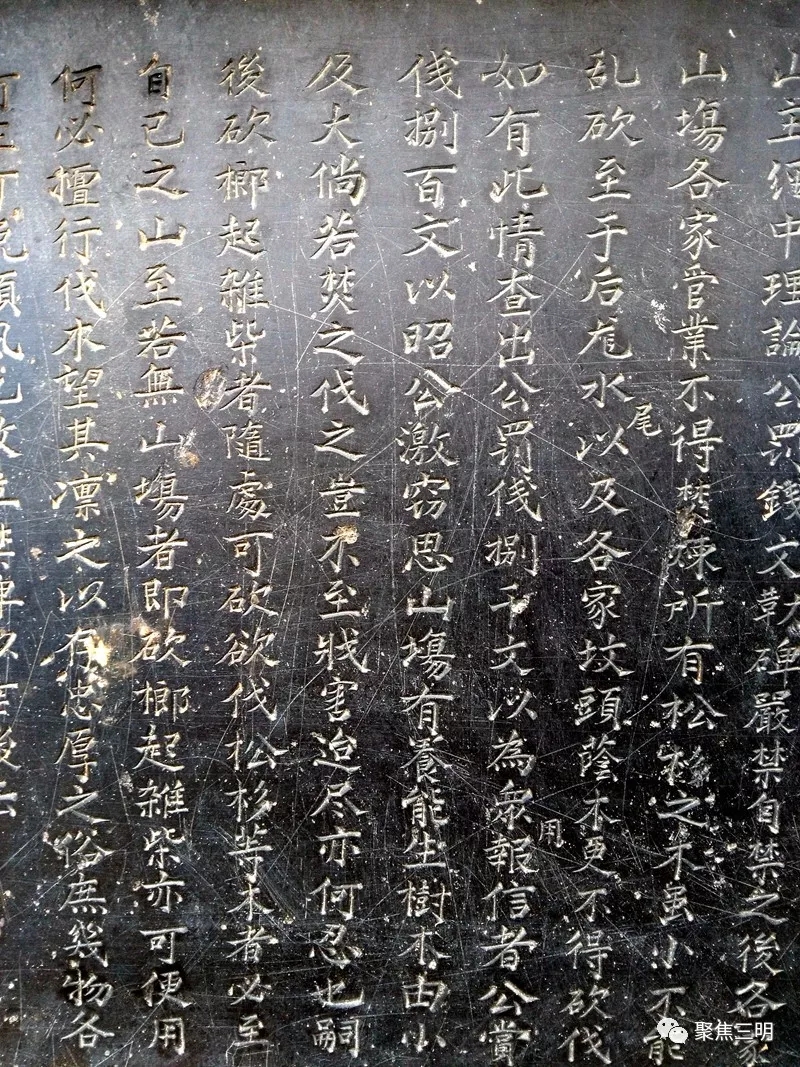 山主經中理論公罰錢文勒碑嚴禁自禁之後各家
山塲各家管業不得焚煉所有松杉之木虽小不能
乱砍至于后龙水尾以及各家坟頭蔭木更不得砍伐
如有此情查出公罰伐捌千文以為衆用報信者公當
伐捌百文以昭公激窃思山塲有養能生樹木由小
及大倘若焚之伐之豈不至戕害迨尽亦何忍也嗣
後砍榔起雜柴者隨處可砍欲伐松杉等木者必至
自已之山至若無山塲者即砍榔起雜柴亦可便用
何必擅行伐木望其凛之以存忠厚之俗庶幾物各
聚焦三明